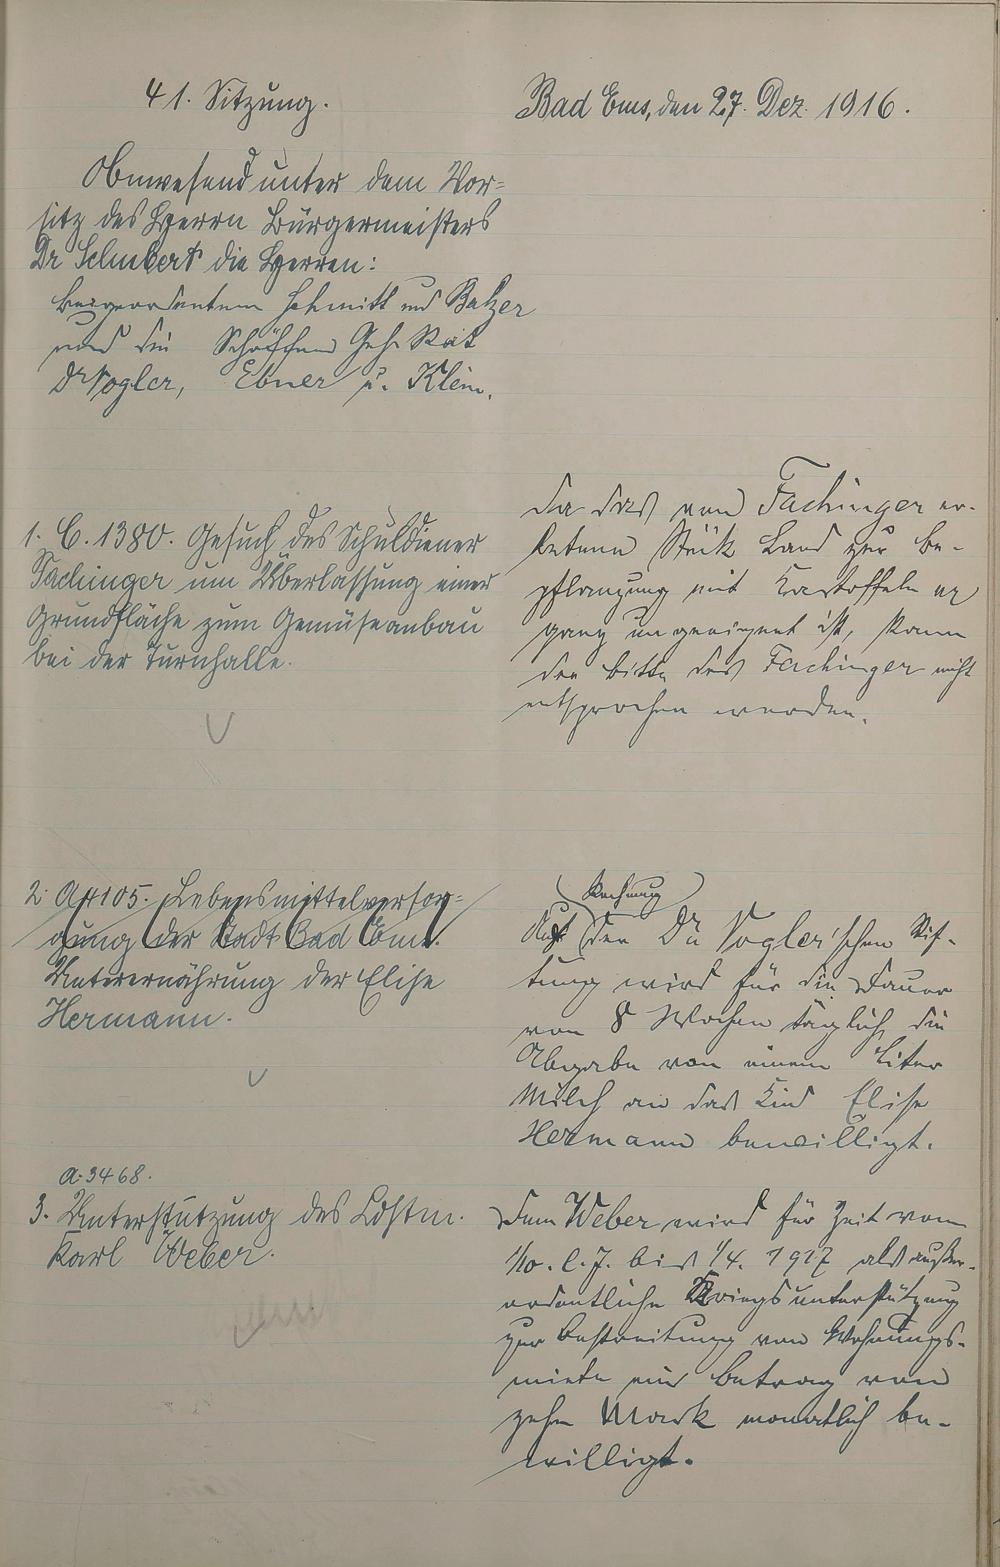 41. Sitzung.
Bad Ems, den 27. Dez. 1916.
Anwesend unter dem Vor-
sitz des Herrn Bürgermeisters
Dr Schubert die Herren:
Beigeordneten Schmitt und Balzer
und die Schöffen Geh. Rat
Dr Vogler, Ebner u. Klein.
1. C. 1380. Gesuch des Schuldiener
Fachinger um Überlassung einer
Grundfläche zum Gemüseanbau
bei der Turnhalle.
Da das von Fachinger er-
betene Stük Land zur Be-
pflanzung mit Kartoffeln
ganz ungeeignet ist, kann
der Bitte des Fachinger nicht
entsprochen werden.
2. A 4105. Lebensmittelversor-
gung der Stadt Bad Ems.
Unterernährung der Elise
Hermann.
Rechnung
Auf der Dr. Vogler'schen Stif-
tung wird für die Dauer
von 8 Wochen täglich die
Abgabe von einem Liter
Milch an das Kind Elise
Hermann bewilligt.
A. 3468.
3. Unterstützung des Ldstm.
Karl Weber.
Dem Weber wird für Zeit vom
1/10. l. J. bis 1/4. 1917 als außer-
ordentliche Kriegsunterstützung
zur Bestreitung von Wohnungs-
miete ein Betrag von
zehn Mark monatlich be-
willigt.